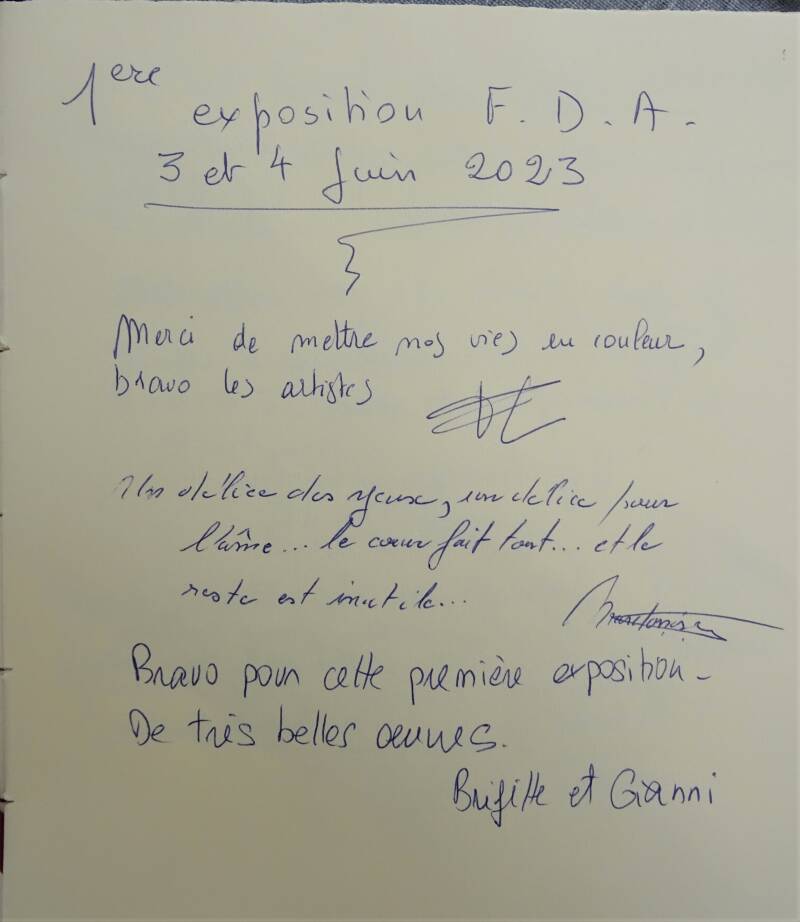 1ere
exposition F. D. A.
3 et 4 Juin 2023
Merci de mettre nos vies en couleur,
bravo les artistes
Un délice des yeux, un délice pour
l'âme... le cœur fait tout... et le
reste est inutile...
Bravo pour cette première exposition -
De très belles œuvres.
Brigitte et Gianni